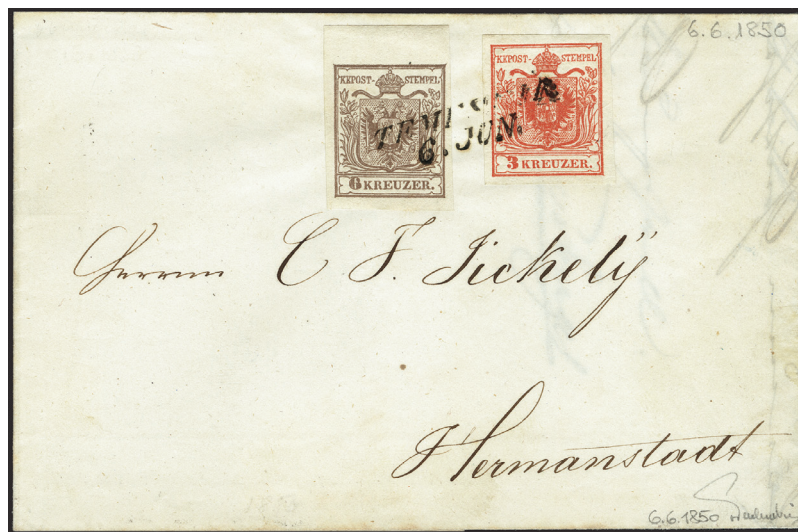 6.6.1850
KKPOST-STEMPEL
6 KREUZER.
KKPOST-STEMPEL
3 KREUZER.
TEMESVÁR
6. JUN.
Herrn C F. Jickelÿ
Hermanstadt
6.6.1850